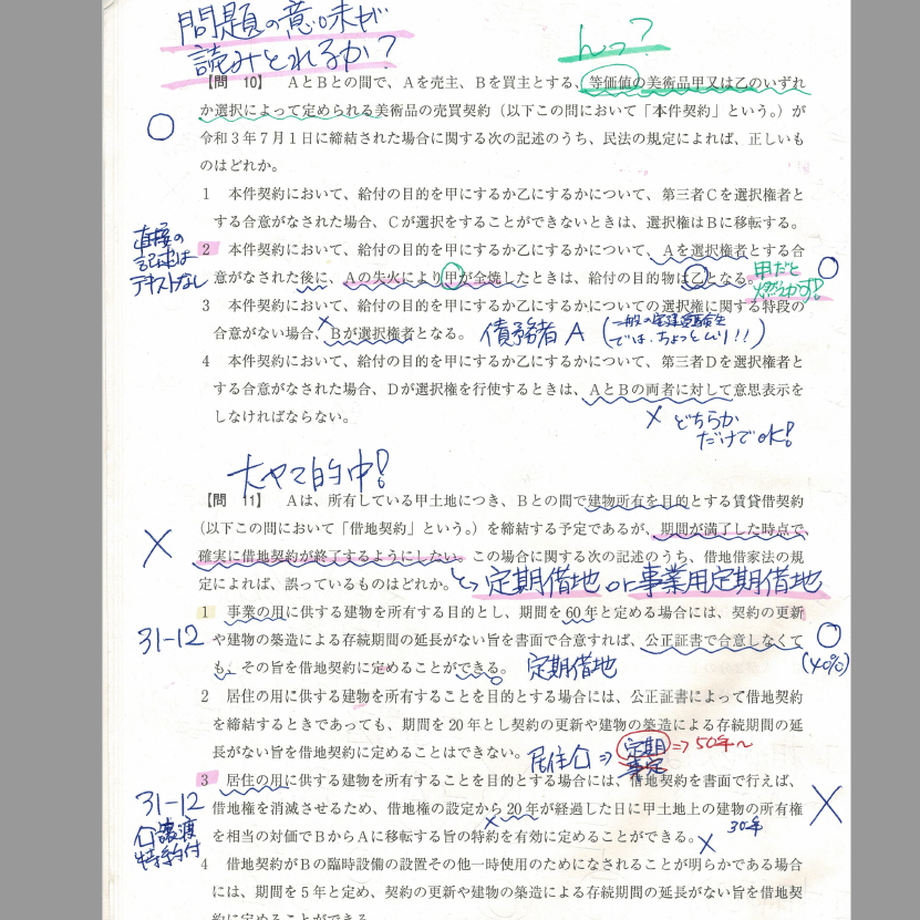 問題の意味が
読みとれるか?
んっ?
【問 10】 AとBとの間で、Aを売主、Bを買主とする、等価値の美術品甲又は乙のいずれ
か選択によって定められる美術品の売買契約(以下この問において「本件契約」という。)が
令和3年7月1日に締結された場合に関する次の記述のうち、民法の規定によれば、正しいも
のはどれか。
1 本件契約において、給付の目的を甲にするか乙にするかについて、第三者Cを選択権者と
する合意がなされた場合、Cが選択をすることができないときは、選択権はBに移転する。
直接の
記述は
テキストなし
2 本件契約において、給付の目的を甲にするか乙にするかについて、Aを選択権者とする合
意がなされた後に、Aの失火により甲が全焼したときは、給付の目的物は乙となる。
甲だと
燃えカす!
3 本件契約において、給付の目的を甲にするか乙にするかについての選択権に関する特段の
合意がない場合、Bが選択権者となる。
債務者A(一般の宅建受験生
では、ちょっとムリ!!)
4 本件契約において、給付の目的を甲にするか乙にするかについて、第三者Dを選択権者と
する合意がなされた場合、Dが選択権を行使するときは、AとBの両者に対して意思表示を
しなければならない。
× どちらか
だけでOK!
大ヤマ的中!
【問 11】 Aは、所有している甲土地につき、Bとの間で建物所有を目的とする賃貸借契約
(以下この問において「借地契約」という。)を締結する予定であるが、期間が満了した時点で、
確実に借地契約が終了するようにしたい。この場合に関する次の記述のうち、借地借家法の規
定によれば、誤っているものはどれか。
→定期借地 or 事業用定期借地
1 事業の用に供する建物を所有する目的とし、期間を60年と定める場合には、契約の更新
や建物の築造による存続期間の延長がない旨を書面で合意すれば、公正証書で合意しなくて
も、その旨を借地契約に定めることができる。
31-12
定期借地
(40%)
2 居住の用に供する建物を所有することを目的とする場合には、公正証書によって借地契約
を締結するときであっても、期間を20年とし契約の更新や建物の築造による存続期間の延
長がない旨を借地契約に定めることはできない。
居住㋺⇒定期⇒50年〜
3 居住の用に供する建物を所有することを目的とする場合には、借地契約を書面で行えば、
借地権を消滅させるため、借地権の設定から20年が経過した日に甲土地上の建物の所有権
を相当の対価でBからAに移転する旨の特約を有効に定めることができる。
31-12
譲渡
特約付
× 30年
4 借地契約がBの臨時設備の設置その他一時使用のためになされることが明らかである場合
には、期間を5年と定め、契約の更新や建物の築造による存続期間の延長がない旨を借地契
約に定めることができる。